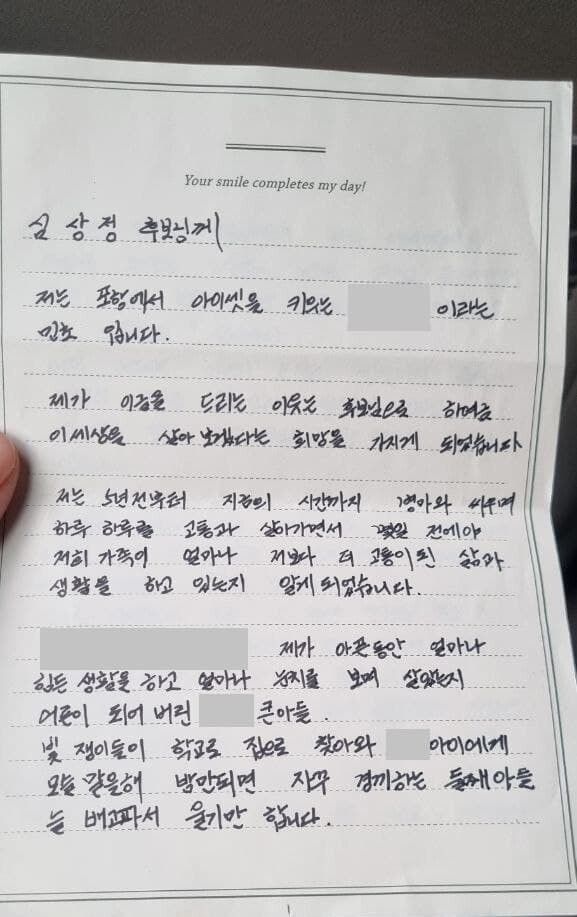 Your smile completes my day!
심상정 후보님께
저는 포항에서 아이셋을 키우는 이라는
민초 입니다.
제가 이글을 드리는 이웃는 후보님으로 하여금
이 세상을 살아 보겠다는 희망을 가지게 되었습니다
저는 5년전부터 지금의 시간까지 병마와 싸우며
하루 하루를 고통과 살아가면서 몇일 전에야
저희 가족이 얼마나 저보다 더 고통이 된 삶과
생활을 하고 있는지 알게 되었습니다.
제가 아픈동안 얼마나
힘든 생활을 하고 얼마나 눈치를 보며 살았는지
어른이 되어 버린 큰아들.
빚 쟁이들이 학교로 집으로 찾아와 아이에게
오늘 갚을해 밤만되면 자꾸 경끼하는 둘째아들
늘 배고파서 울기만 합니다.
1